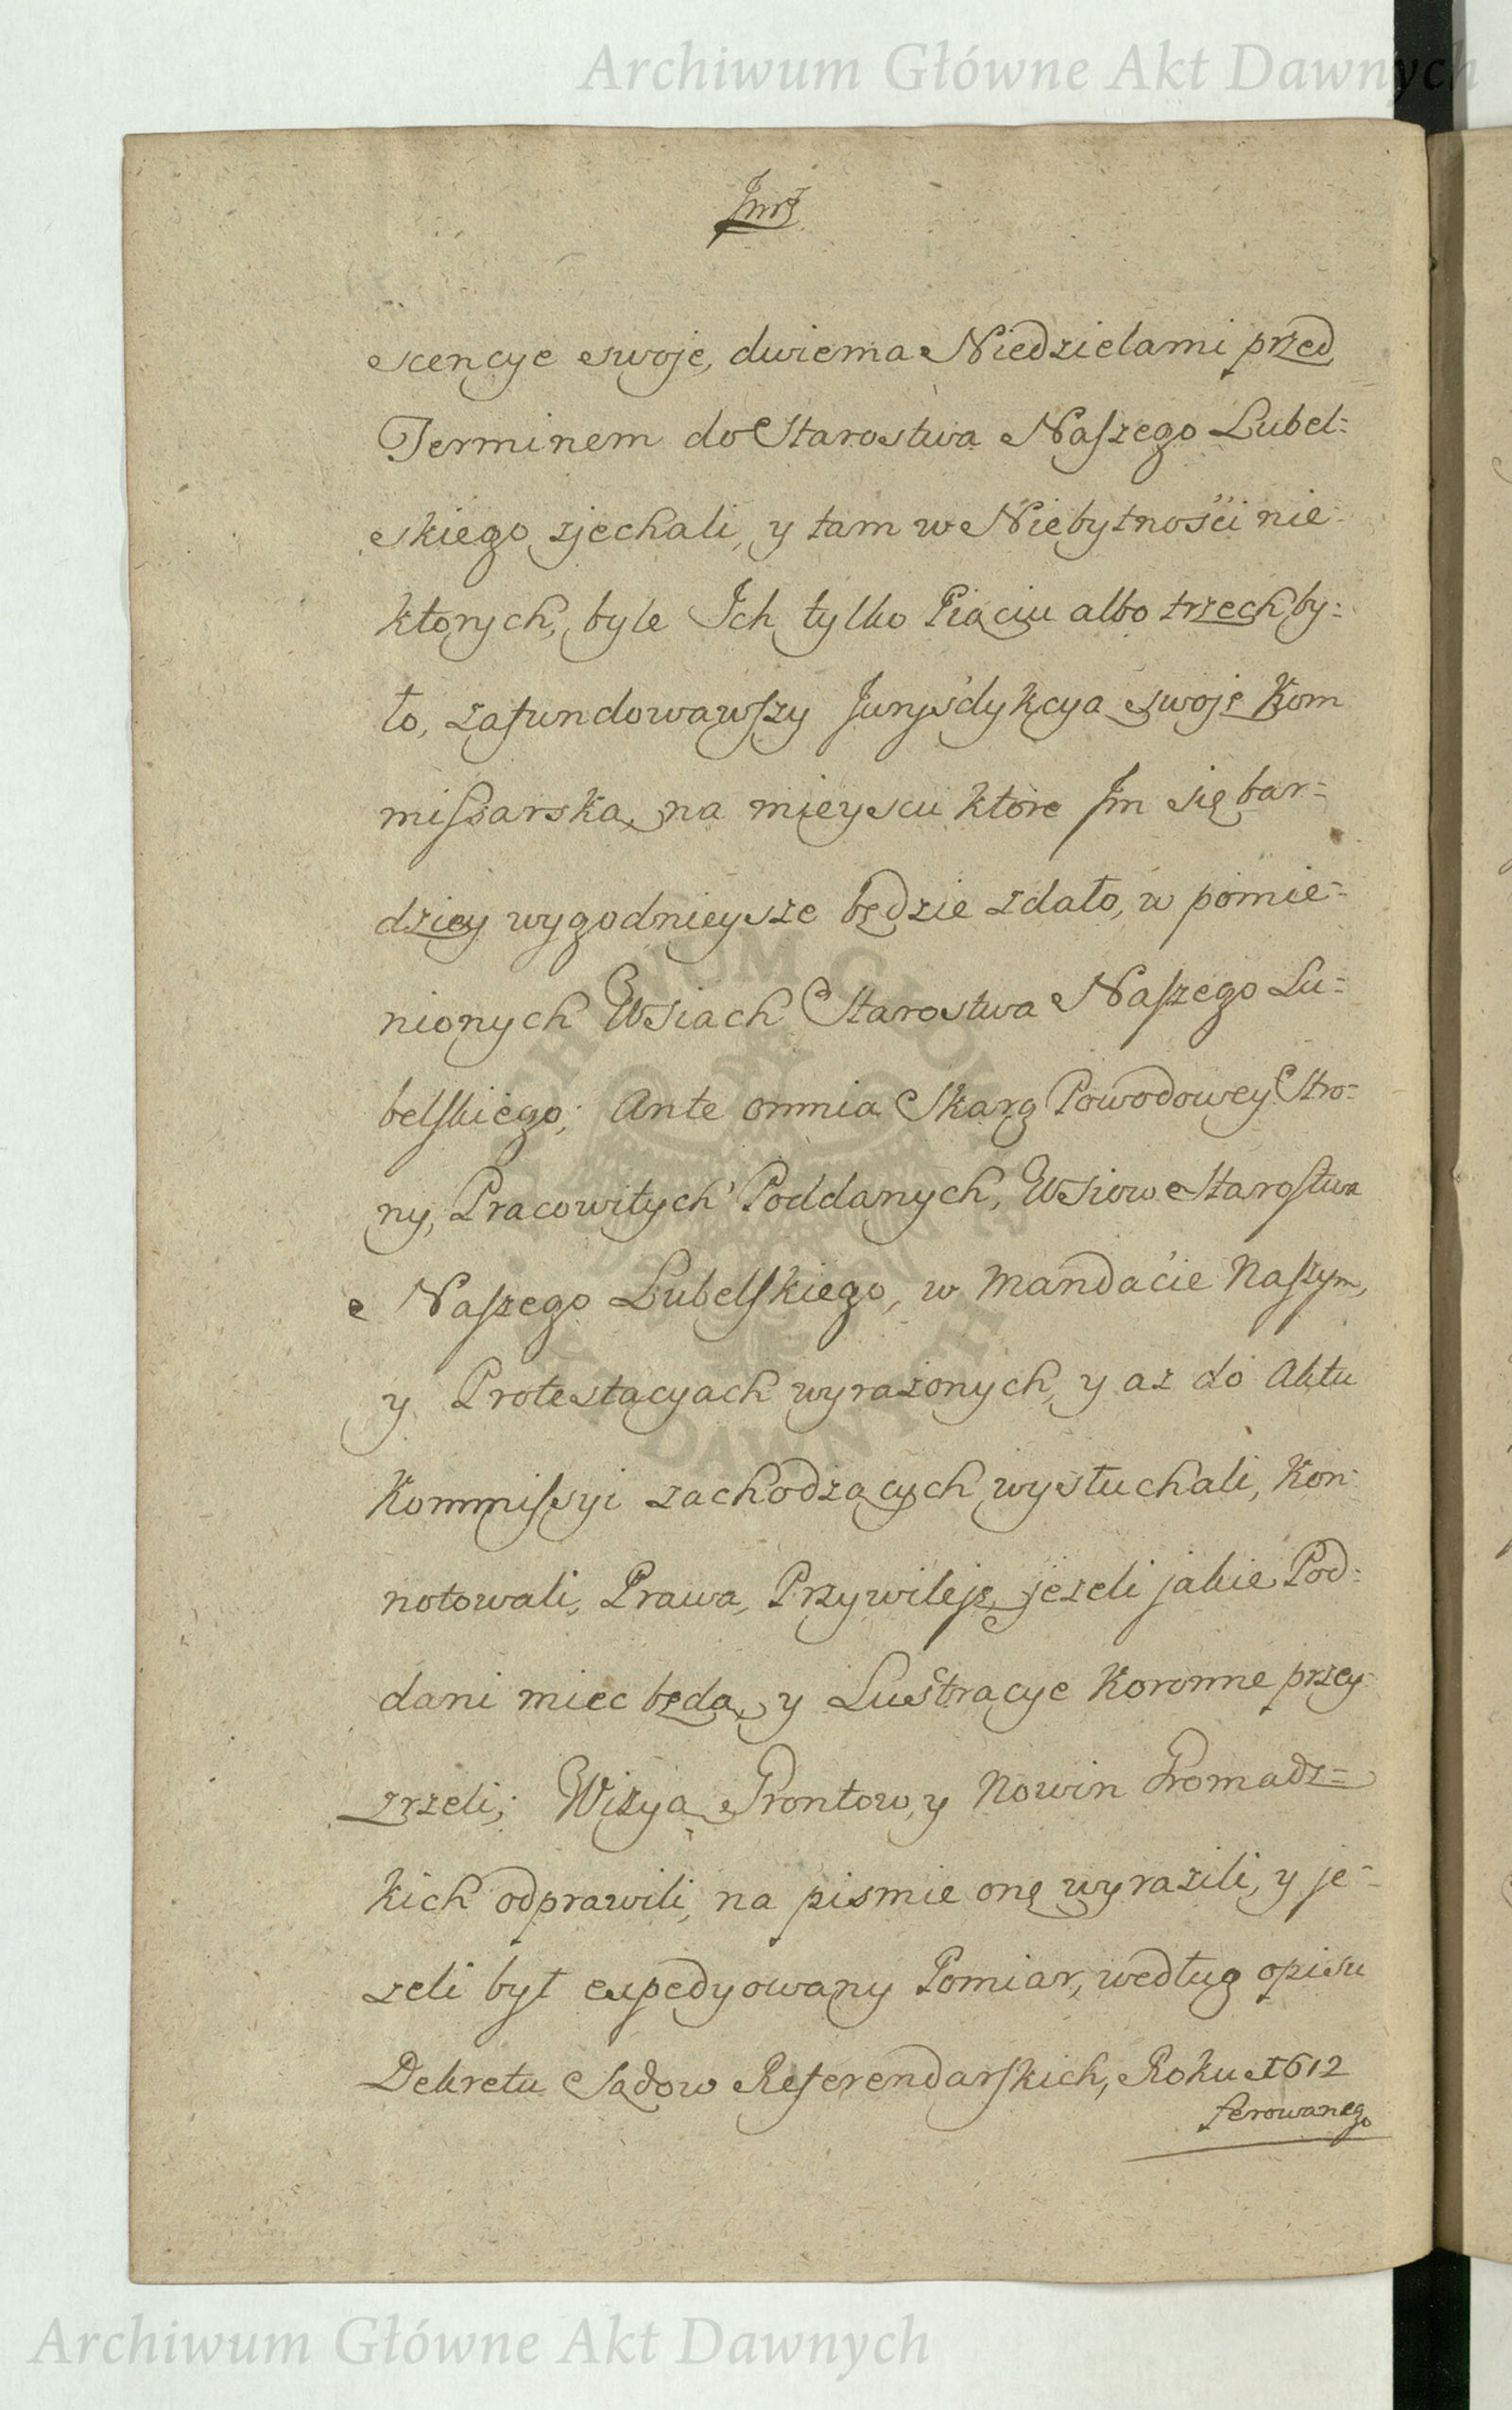 Archiwum Główne Akt Dawnych
scencye swoje, dwiema Niedzielami przed
Terminem do Starostwa Naszego Lubel=
skiego zjechali, y tam w Niebytności nie=
ktorych, byle Ich tylko Piąciu albo trzech by=
ło, zafundowawszy Jurysdykcya swoję Kom
missarską, na mieyscu ktore Jm się bar=
dziey wygodnieysze będzie zdało, w pomie=
nionych Wsiach Starostwa Naszego Lu=
belskiego; Ante omnia Skarg Powodowey Stro=
ny, Pracowitych Poddanych, Wsiow Starostwa
Naszego Lubelskiego, w Mandacie Naszym,
y Protestacyach wyrażonych, y az do Aktu
Kommissyi zachodzących wysłuchali, Kon=
notowali, Prawa, Przywileje, jezeli jakie Pod=
dani miec będą, y Lustracye Koronne przey=
zrzeli; Wizyą Grontow, y Nowin Gromadz=
kich odprawili, na pismie onę wyrazili, y je=
zeli był expedyowany Pomiar, według opisu
Dekretu Sądow Referendarskich, Roku 1612
ferowanego
ARCHIWUM GŁÓWNE
AKT DAWNYCH
Archiwum Główne Akt Dawnych